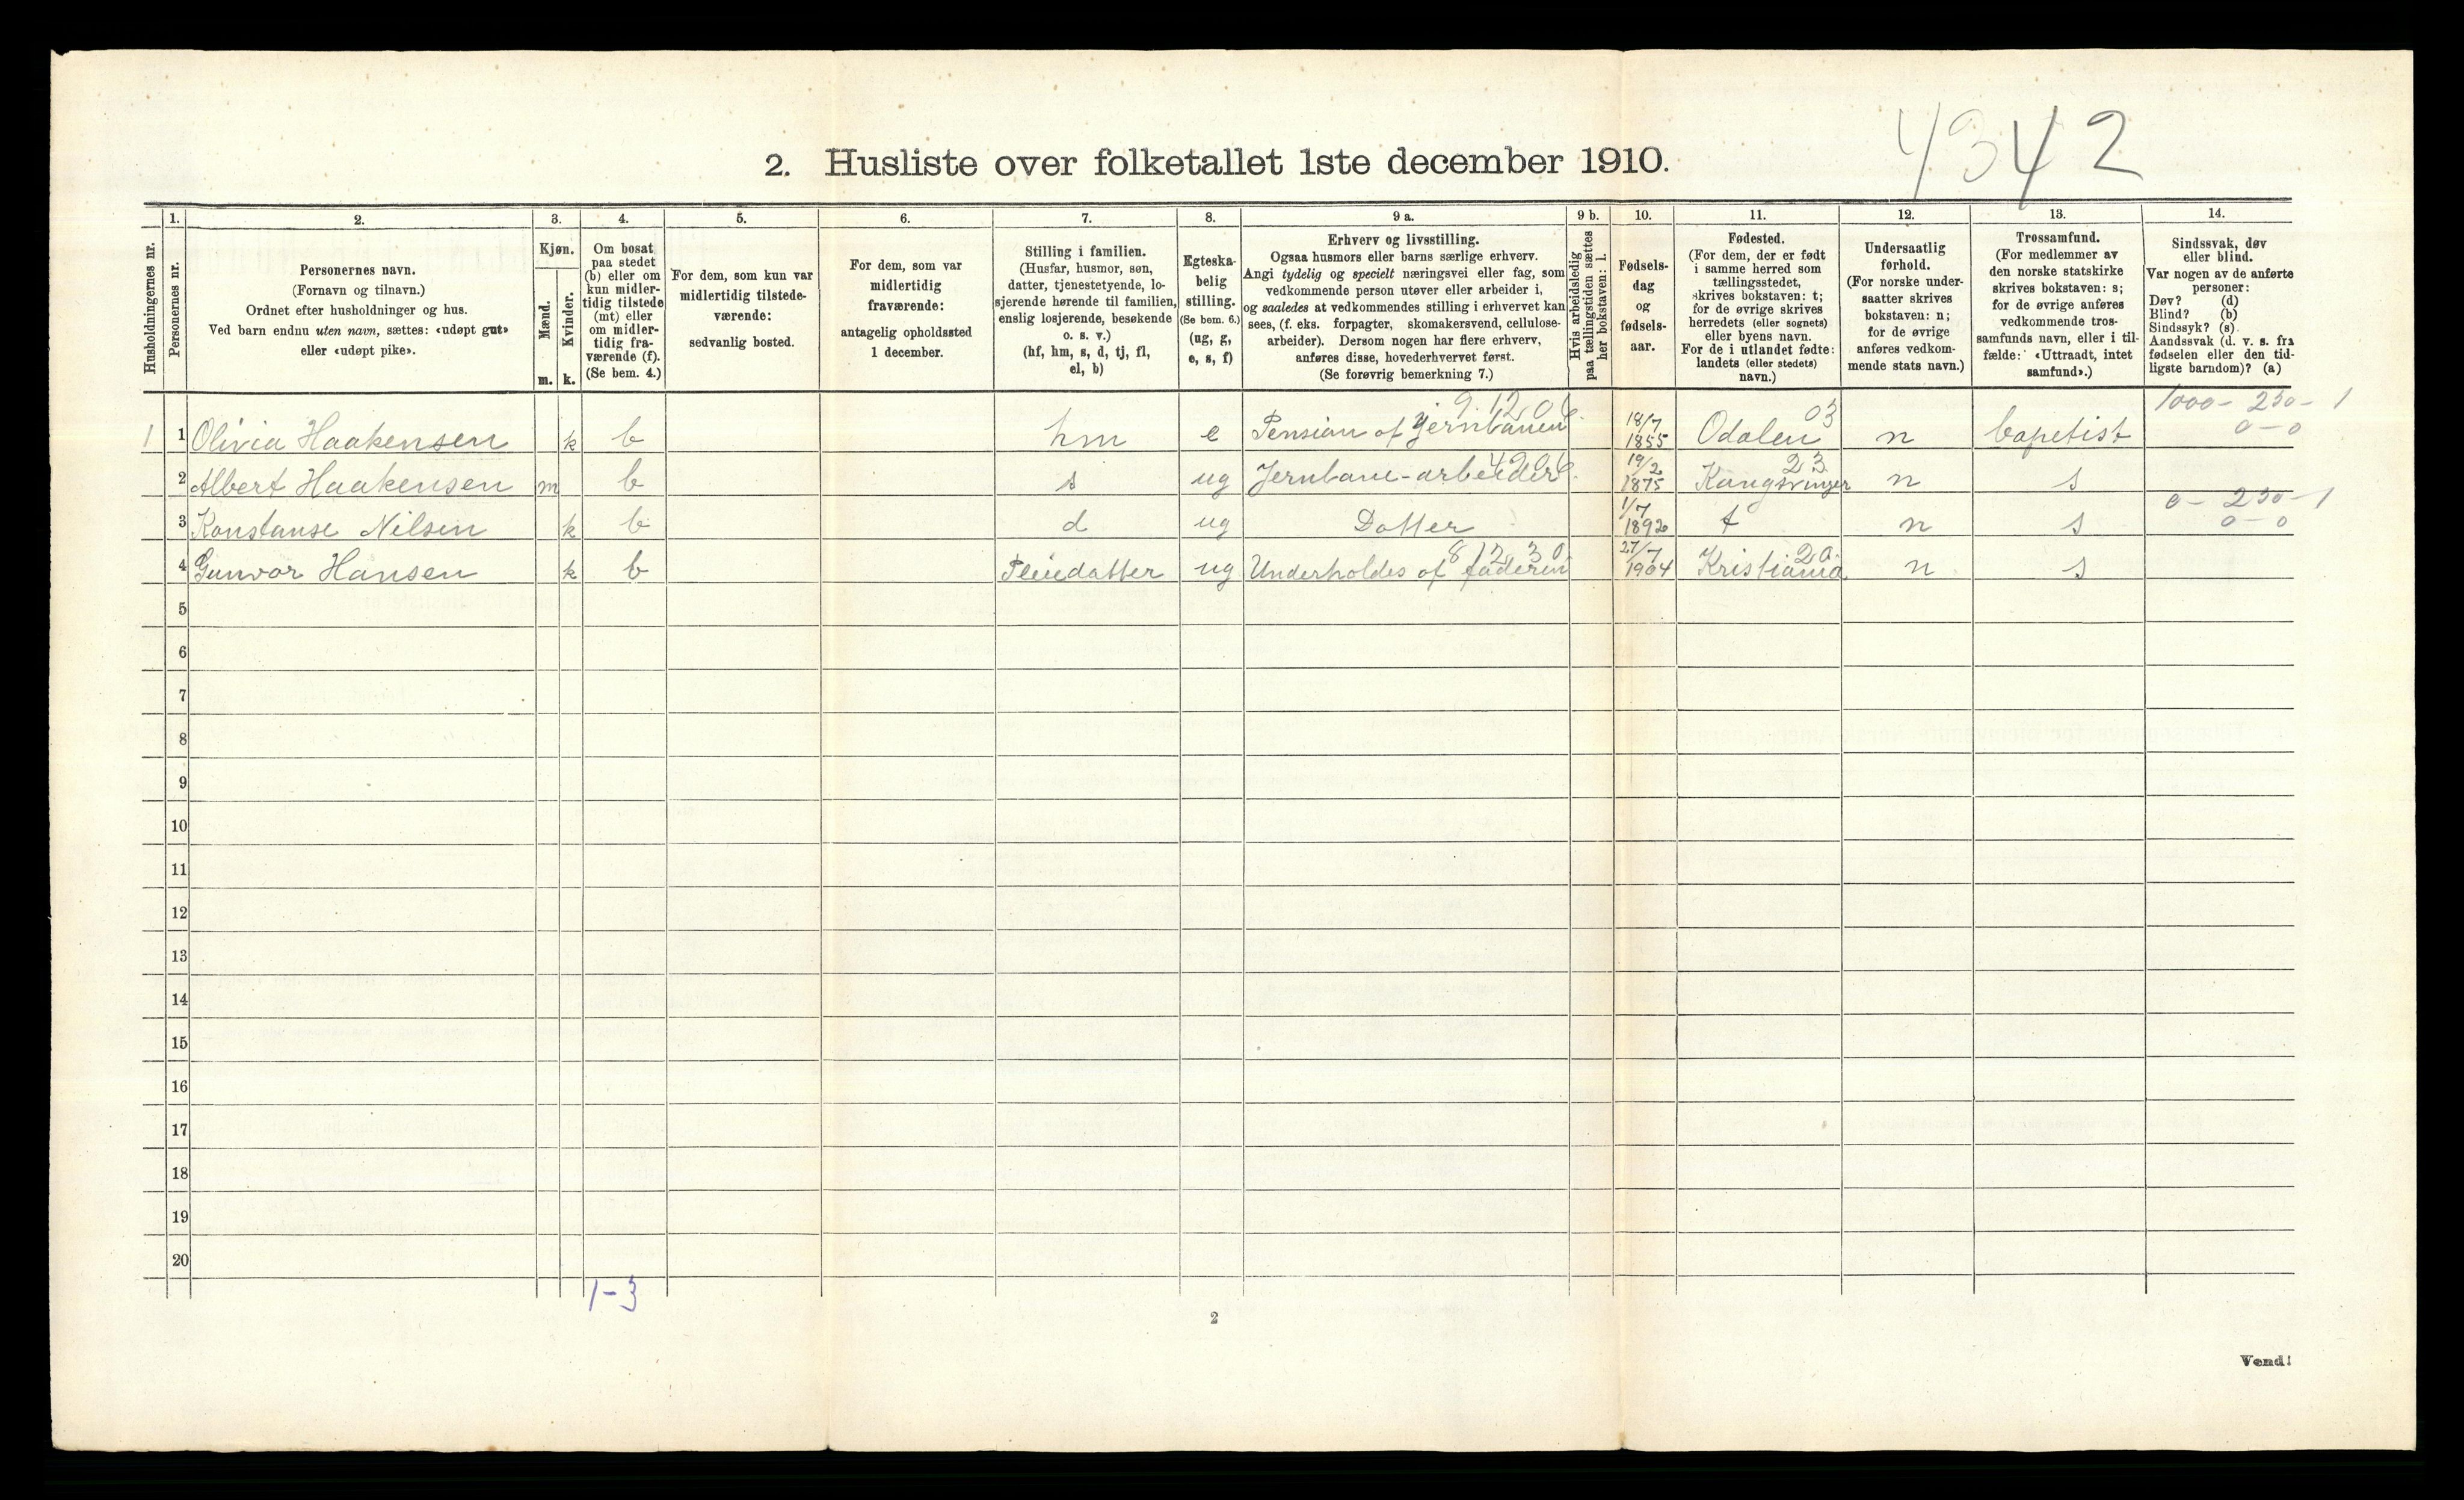 4342
2. Husliste over folketallet 1ste december 1910.
Husholdningernes nr.
1. Personernes nr.
2. Personernes navn. (Fornavn og tilnavn.) Ordnet efter husholdninger og hus. Ved barn endnu uten navn, sættes: «udøpt gut» eller «udøpt pike».
3. Kjøn. Mænd. m. Kvinder. k.
4. Om bosat paa stedet (b) eller om kun midler-tidig tilstede (mt) eller om midler-tidig fra-værende (f). (Se bem. 4.)
5. For dem, som kun var midlertidig tilstede-værende: sedvanlig bosted.
6. For dem, som var midlertidig fraværende: antagelig opholdssted 1 december.
7. Stilling i familien. (Husfar, husmor, søn, datter, tjenestetyende, lo-sjerende hørende til familien, enslig losjerende, besøkende o. s. v.) (hf, hm, s, d, tj, fl, el, b)
8. Egteska-belig stilling. (Se bem. 6.) (ug, g, e, s, f)
9 a. Erhverv og livsstilling. Ogsaa husmors eller barns særlige erhverv. Angi tydelig og specielt næringsvei eller fag, som vedkommende person utøver eller arbeider i, og saaledes at vedkommendes stilling i erhvervet kan sees, (f. eks. forpagter, skomakersvend, cellulose-arbeider). Dersom nogen har flere erhverv, anføres disse, hovederhvervet først. (Se forøvrig bemerkning 7.)
9 b. Hvis arbeidsledig paa tællingstiden sættes her bokstaven: l.
10. Fødsels-dag og fødsels-aar.
11. Fødested. (For dem, der er født i samme herred som tællingsstedet, skrives bokstaven: t; for de øvrige skrives herredets (eller sognets) eller byens navn. For de i utlandet fødte: landets (eller stedets) navn.)
12. Undersaatlig forhold. (For norske under-saatter skrives bokstaven: n; for de øvrige anføres vedkom-mende stats navn.)
13. Trossamfund. (For medlemmer av den norske statskirke skrives bokstaven: s; for de øvrige anføres vedkommende tros-samfunds navn, eller i til-fælde: «Uttraadt, intet samfund».)
14. Sindssvak, døv eller blind. Var nogen av de anførte personer: Døv? (d) Blind? (b) Sindssyk? (s) Aandssvak (d. v. s. fra fødselen eller den tid-ligste barndom)? (a)
1 1 Olivia Haakensen k b hm e Pension af Jernbanen 18/7 1855 Odalen 03 n bapetist 1000 - 230 - 1 0 - 0
2 Albert Haakensen m b s ug Jernbane-arbeider 19/2 1875 Kongsvinger 23 n s
3 Konstanse Nilsen k b d ug Datter 1/7 1892 t n s 0 - 230 - 1 0 - 0
4 Gunvor Hansen k b Pleiedatter ug Underholdes af faderen 8 12 30 27/7 1904 Kristiania 20 n s
5
6
7
8
9
10
11
12
13
14
15
16
17
18
19
20
1-3
2
Vend!